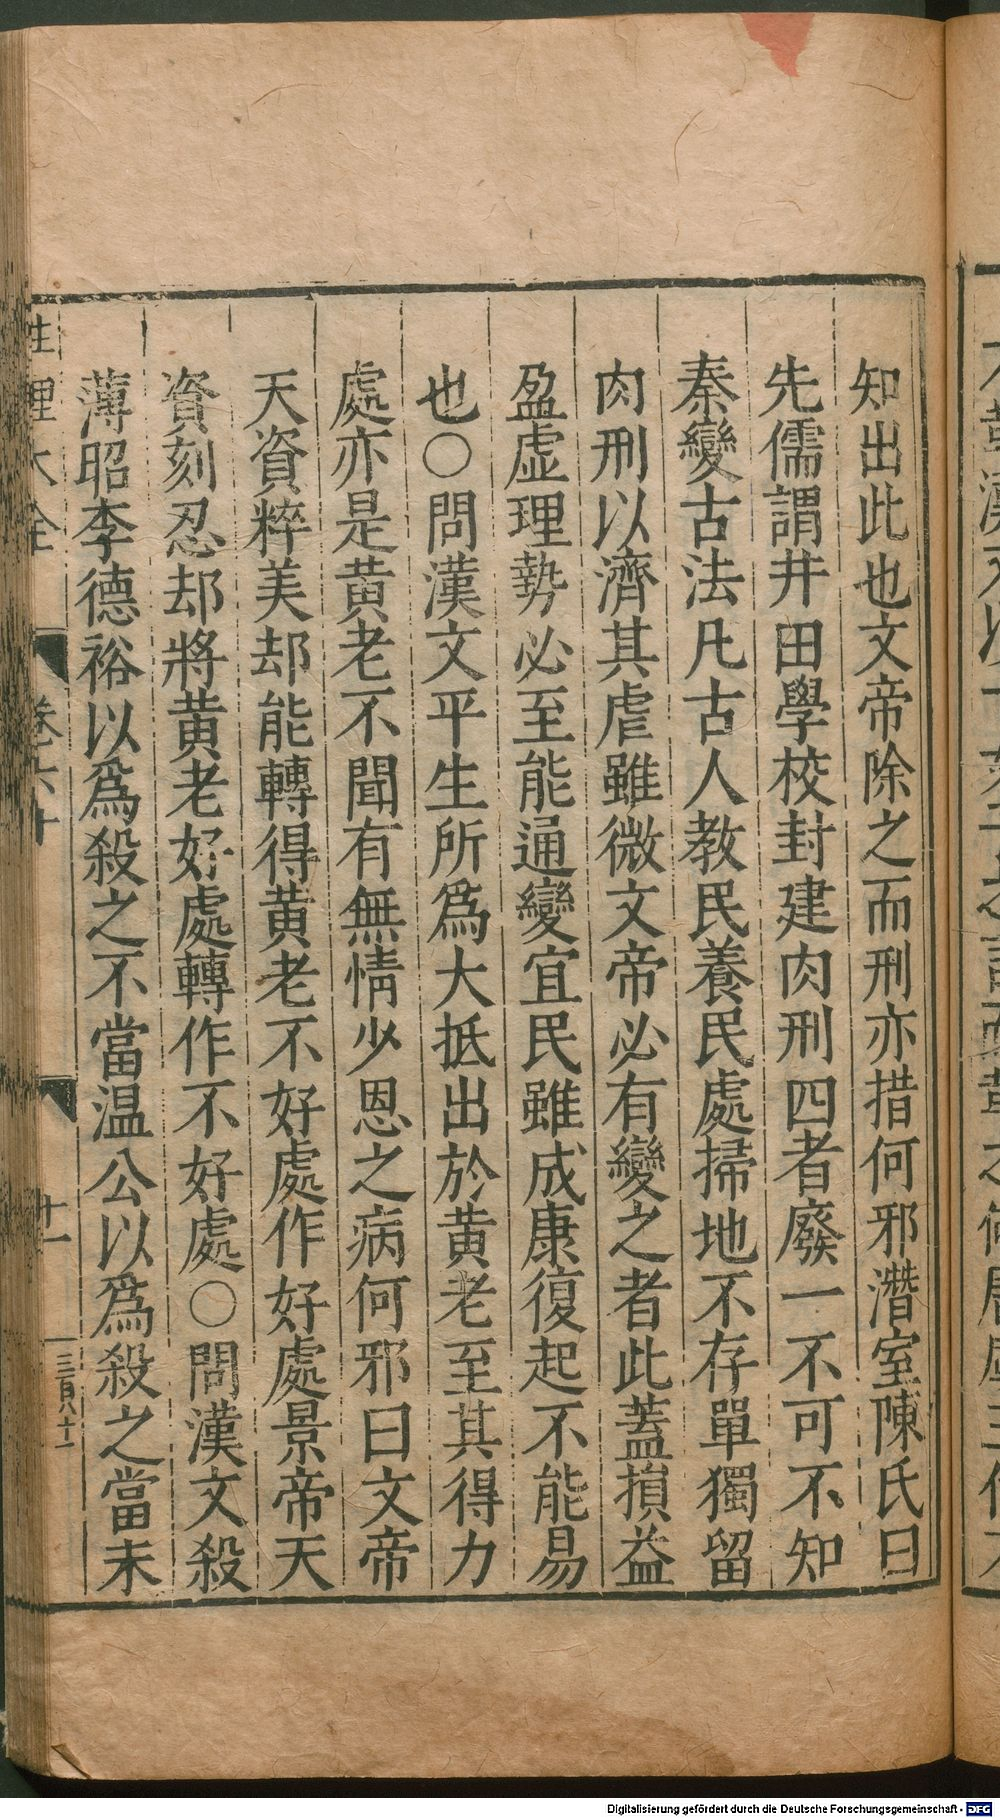 知出此也文帝除之而刑亦措何邪潛室陳氏曰
先儒謂井田學校封建肉刑四者廢一不可不知
秦變古法凡古人教民養民處掃地不存單獨留
肉刑以濟其虐雖微文帝必有變之者此蓋損益
盈虛理勢必至能通變宜民雖成康復起不能易
也○問漢文平生所爲大抵出於黄老至其得力
處亦是黄老不聞有無情少恩之病何邪曰文帝
天資粹美却能轉得黄老不好處作好處景帝天
資刻忍却將黄老好處轉作不好處○問漢文殺
薄昭李德裕以爲殺之不當温公以爲殺之當未
性理大全
卷六十
十一
三百八十一
Digitalisierung gefördert durch die Deutsche Forschungsgemeinschaft - DFG